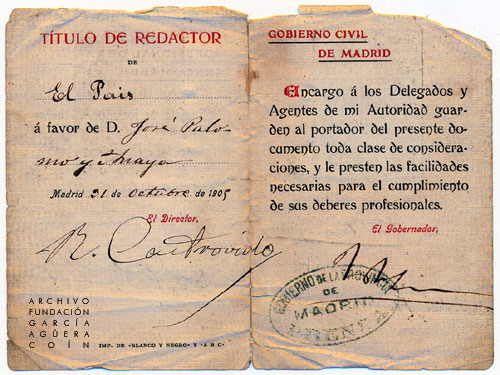 TÍTULO DE REDACTOR
DE
El Pais
á favor de D. José Palo-
mo y Anaya
Madrid 21 de Octubre de 1905
El Director,
R. Castrovido
ARCHIVO
FUNDACIÓN
GARCÍA
AGÜERA
COÍN
IMP. DE «BLANCO Y NEGRO» Y «A B C»
GOBIERNO CIVIL
DE MADRID
Encargo á los Delegados y
Agentes de mi Autoridad guar-
den al portador del presente do-
cumento toda clase de considera-
ciones, y le presten las facilidades
necesarias para el cumplimiento
de sus deberes profesionales.
El Gobernador,
GOBIERNO DE LA PROVINCIA
DE
MADRID
PRENSA